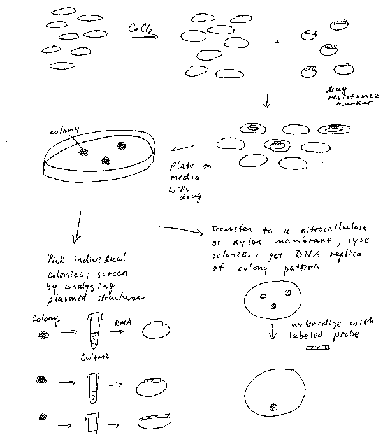 CaCl₂
+
drug
resistance
marker
colony
plate on
media
with
drug
Transfer to a nitrocellulose
or nylon membrane, lyse
colonies, get DNA replica
of colony pattern
Pick individual
colonies; screen
by analyzing
plasmid structures
Colony
DNA
Culture
hybridize with
labeled probe